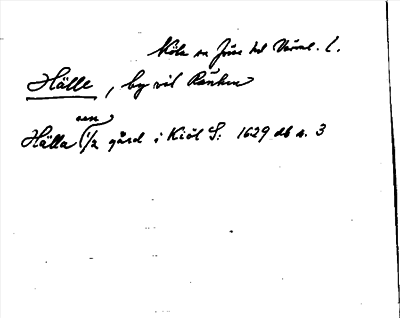 Köla sn Jösse hd Värml. l.
Hälle, by vid Ränken
een
Hälla 1/2 gård i Kiöl S: 1629 db s. 3